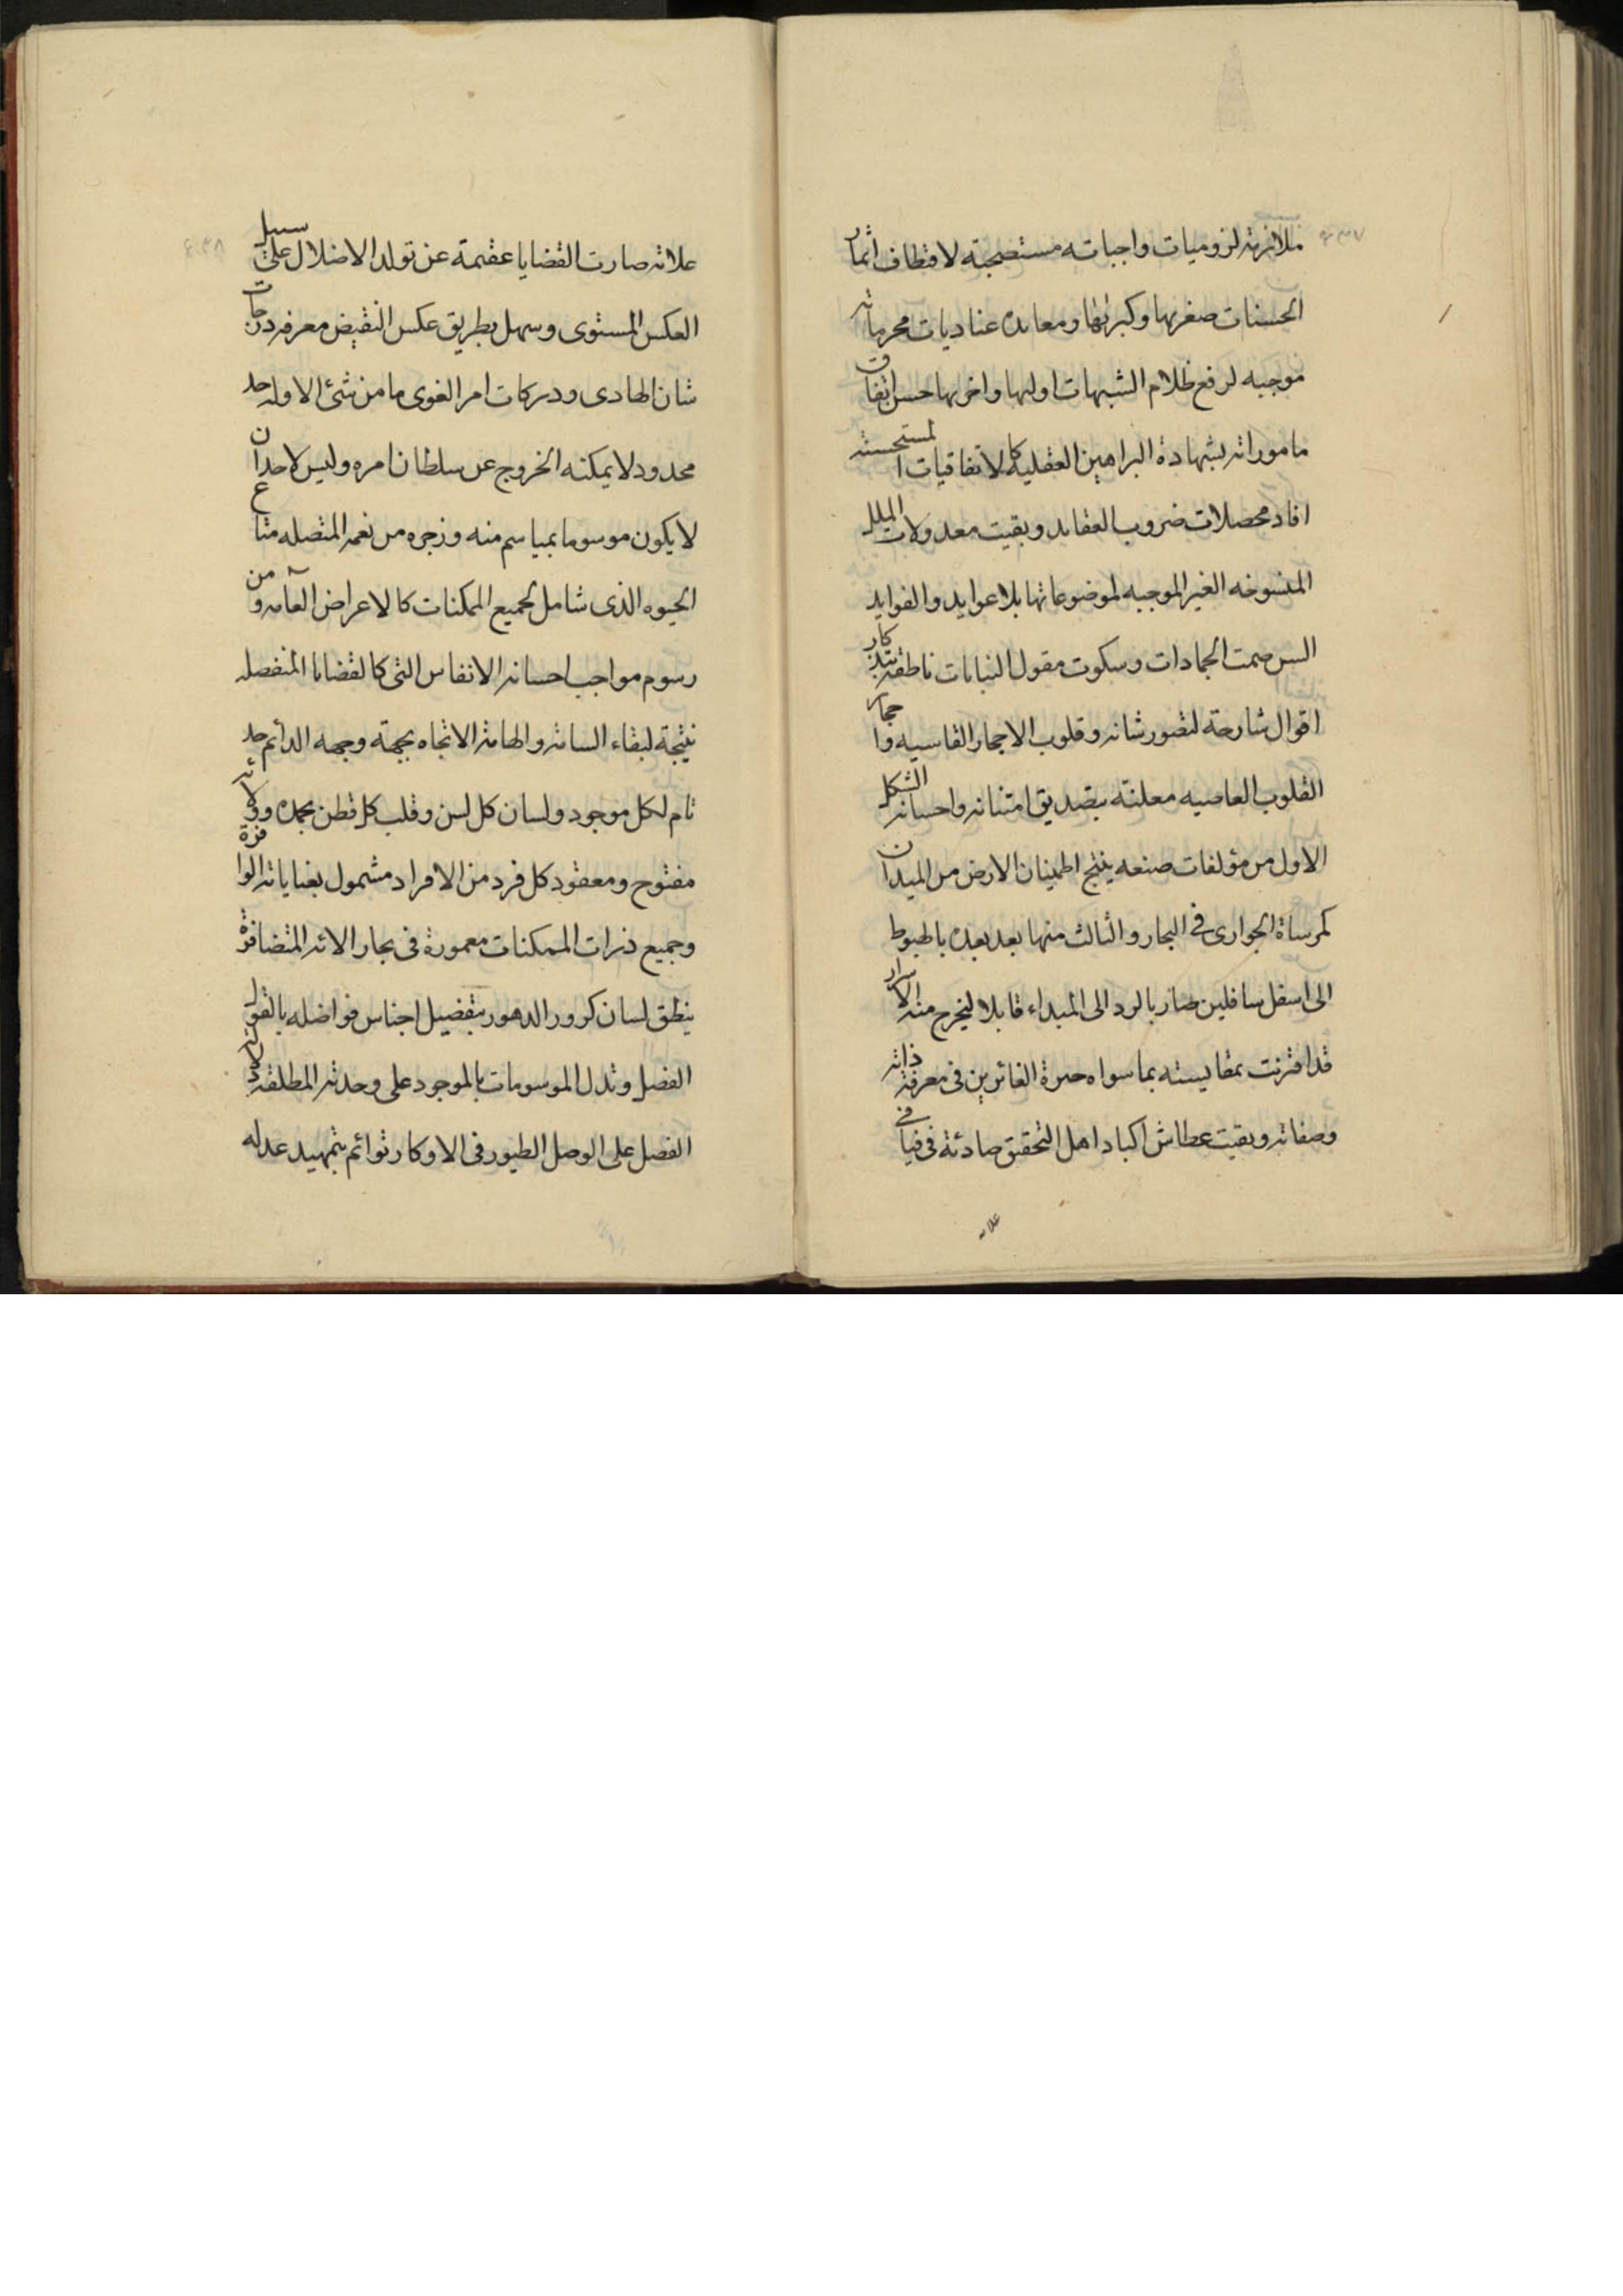 ملازمته لزوميات واجباته مستصحبة لاقتطاف اثمار
الحسنات صغريها وكبريها ومعانده عناديات محرماته
موجبه لرفع ظلام الشبهات اوليها واخريها حسن اتفاق
ماموراته بشهادة البراهين العقليه كالاتفاقيات المستحسنه
افاد محصلات ضروب العقايد وبقيت معدولات الملل
المنسوخه الغير الموجبه لموضوعاتها بلا عوايد والفوايد
السن صمت الجمادات وسكوت مقول النباتات ناطقة بتذكار
اقوال شارحة لتصور شانه وقلوب الاحجار القاسيه واحجار
القلوب العاصيه معلنة بتصديق امتنانه واحسانه الشكل
الاول من مؤلفات صنعه ينتج اطمينان الارض من الميدان
كمرساة الجوارى فى البحار والثالث منها بعد بعده بالهبوط
الى اسفل سافلين صار بالرد الى المبداء قابلا ليخرج منه الاسرار
قد اقترنت بمقايسته بما سواه حيرة الفائزين فى معرفة ذاته
وصفاته وبقيت عطاش اكباد اهل التحقيق صادئة فى فيافى
علاته
علاته صارت القضايا عقيمة عن تولد الاضلال على سبيل
العكس المستوى وسهل بطريق عكس النقيض معرفه درجات
شان الهادى ودركات امر الغوى ما من شئ الا وله حد
محدود لا يمكنه الخروج عن سلطان امره وليس لاحد ان
لا يكون موسوما بمياسم منه وزجره من نعمه المتصله متاع
الحيوه الذى شامل لجميع الممكنات كالاعراض العامه ومن
رسوم مواجب احسانه الانفاس التى كالقضايا المنفصله
نتيجة لبقاء السامة والهامة الاتجاه بجهة وجهه الدائم حد
تام لكل موجود ولسان كل لسن وقلب كل فطن بحمده وولائه
مفتوح ومعقود كل فرد من الافراد مشمول بعناياته الوافرة
وجميع ذرات الممكنات مغمورة فى بحار الائه المتضافرة
ينطق لسان كرور الدهور بتفضيل اجناس فواضله بالقول
الفصل وتدل الموسومات بالموجود على وحدته المطلقة
الفصل على الوصل الطيور فى الاوكار توائم بتمهيد عدله